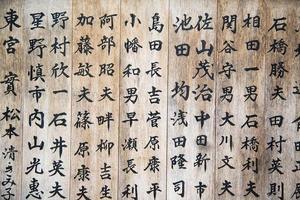 石橋勝夫 田村英則
相田一男 石橋利夫
間谷守男 大川文夫
佐山茂治 中田新市
池田均 浅田隆司
島田長吉 菅原康平
小幡和男 早瀬長利
阿部昭夫 畔柳吉生
加藤敏夫 篠原康夫
野村欣一 石井英夫
星野慎市 内山光惠
東宮實 松本清